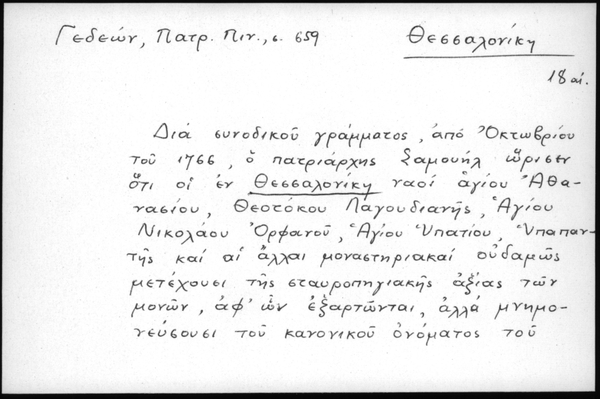 Γεδεών, Πατρ. Πιν., σ. 659
Θεσσαλονίκη
18 αἰ.
Διά συνοδικοῦ γράμματος, ἀπό Ὀκτωβρίου
τοῦ 1766, ὁ πατριάρχης Σαμουήλ ὥρισεν
ὅτι οἱ ἐν Θεσσαλονίκῃ ναοί ἁγίου Ἀθα-
νασίου, Θεοτόκου Λαγουδιανῆς, Ἁγίου
Νικολάου Ὀρφανοῦ, Ἁγίου Ὑπατίου, Ὑπαπαν-
τῆς καί αἱ ἄλλαι μοναστηριακαί οὐδαμῶς
μετέχουσι τῆς σταυροπηγιακῆς ἀξίας τῶν
μονῶν, ἀφ' ὧν ἐξαρτῶνται, ἀλλά μνημο-
νεύσουσι τοῦ κανονικοῦ ὀνόματος τοῦ